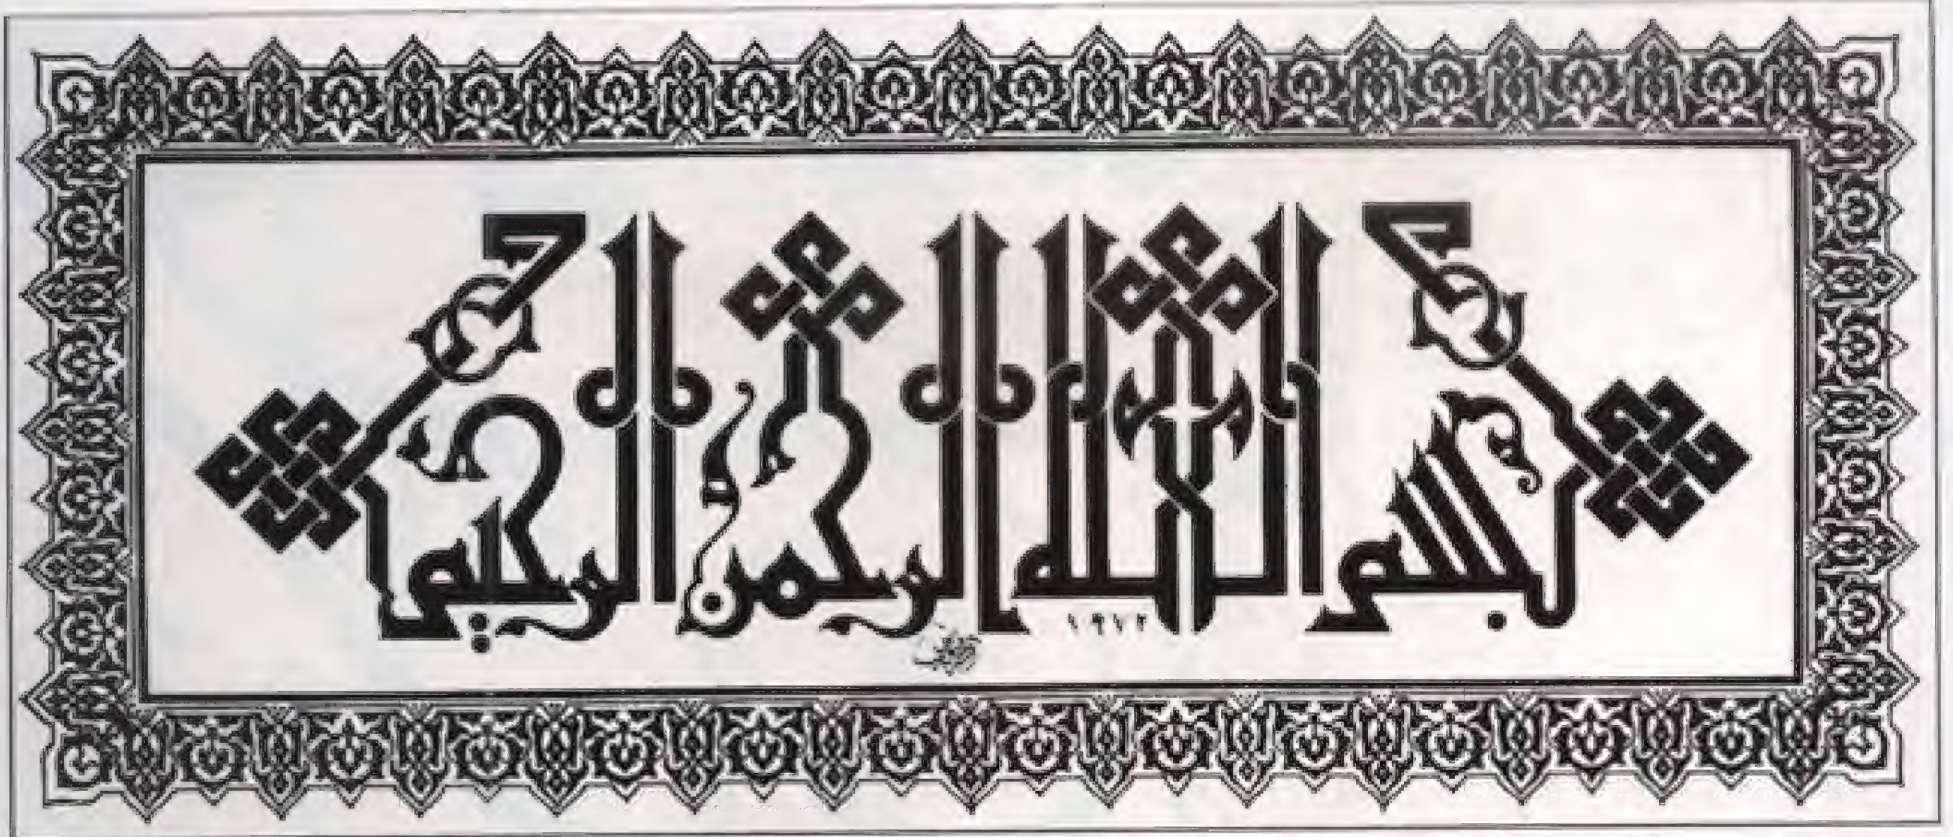 بسم الله الرحمن الرحيم
١٩١٢